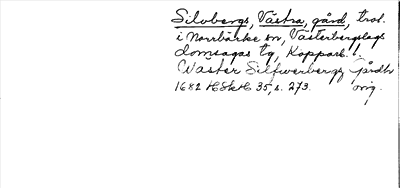 Silvbergs, Västra, gård, trol.
i Norrbärke sn, Västerbergslags
domsagas tg, Kopparb. l.
Waster Silfwerbergz Gårdh
1682 HSH 35, s. 273. orig.